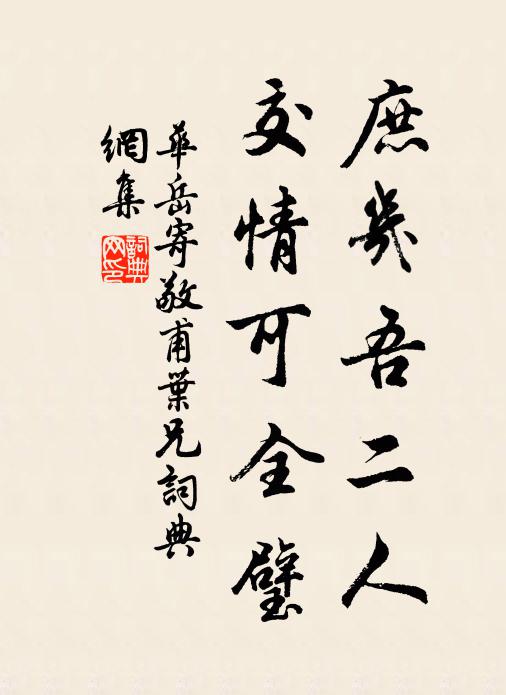 庶幾吾二人
交情可全璧
華岳寄敬甫葉兄詞典
網集
詞典
网印